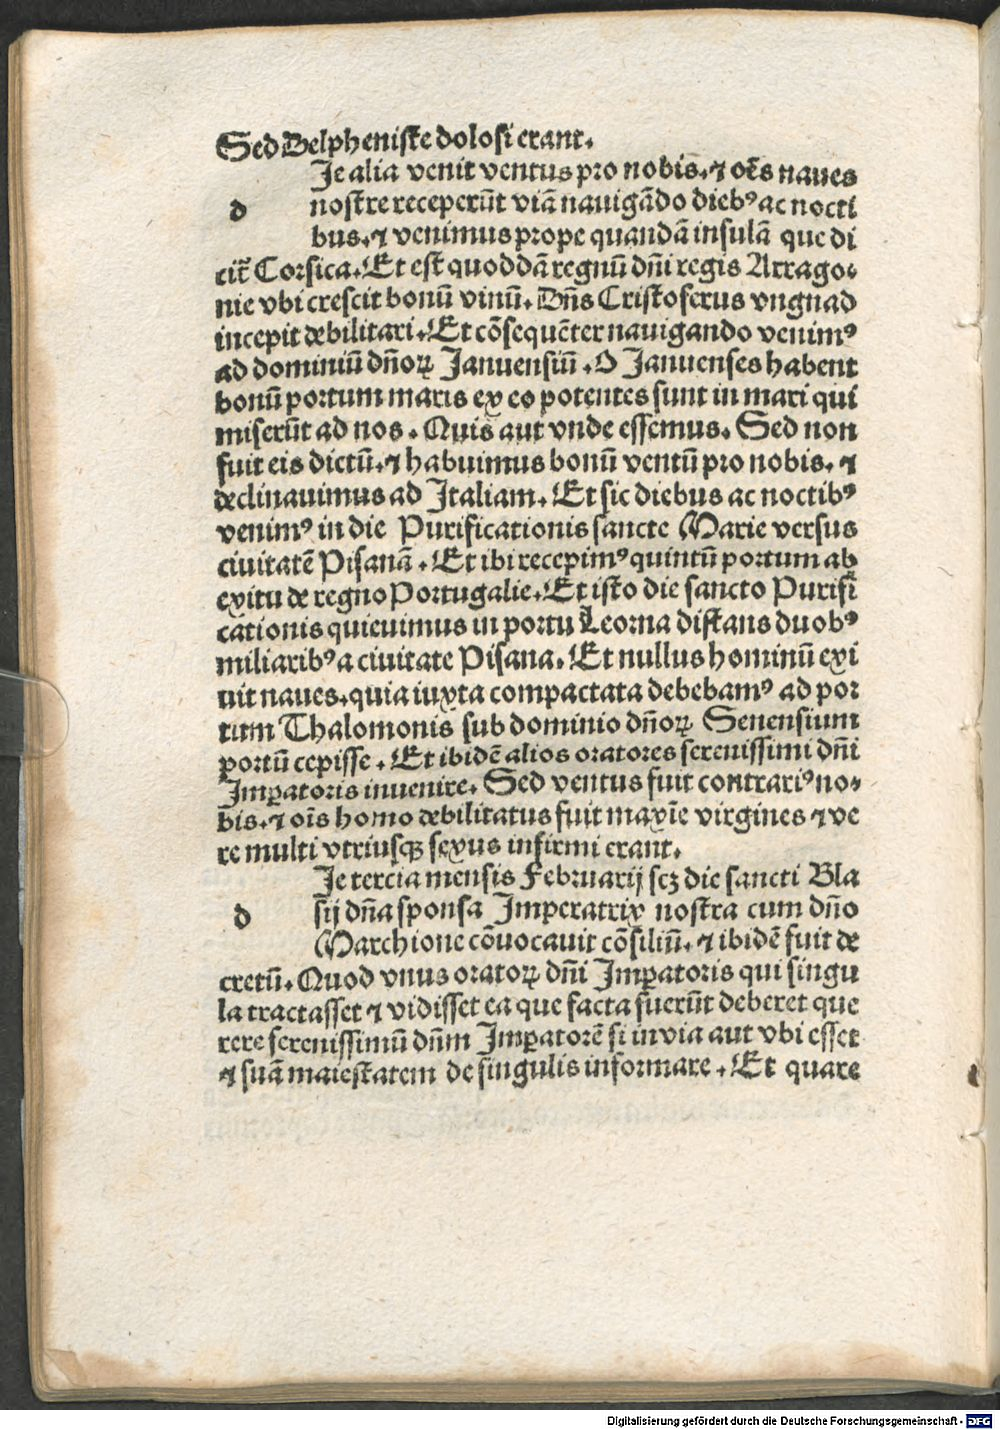 Sed Delpheniste dolosi erant.
Je alia venit ventus pro nobis. ⁊ oẽs naues
d nostre receperũt viã nauigãdo diebꝰ ac nocti
bus. ⁊ venimus prope quandã insulã que di
citr̃ Corsica. Et est quoddã regnũ dñi regis Arrago⸗
nie vbi crescit bonũ vinũ. Dñs Cristoferus vngnad
incepit debilitari. Et cõsequẽter nauigando venimꝰ
ad dominiũ dñoꝝ Januensiũ. O Januenses habent
bonũ portum maris ex eo potentes sunt in mari qui
miserũt ad nos. Quis aut vnde essemus. Sed non
fuit eis dictũ. ⁊ habuimus bonũ ventũ pro nobis. ⁊
declinauimus ad Italiam. Et sic diebus ac noctibꝰ
venimꝰ in die Purificationis sancte Marie versus
ciuitatẽ Pisanã. Et ibi recepimꝰ quintũ portum ab
exitu de regno Portugalie. Et isto die sancto Purifi
cationis quieuimus in portu Leorna distans duobꝰ
miliaribꝰ a ciuitate Pisana. Et nullus hominũ exi
uit naues. quia iuxta compactata debebamꝰ ad por
tum Thalomonis sub dominio dñoꝝ Senensium
portũ cepisse. Et ibidẽ alios oratores serenissimi dñi
Imꝑatoris inuenire. Sed ventus fuit contrariꝰ no⸗
bis. ⁊ oĩs homo debilitatus fuit maxĩe virgines ⁊ ve
re multi vtriusqꝫ sexus infirmi erant.
Je tercia mensis Februarij scꝫ die sancti Bla
d sij dña sponsa Imperatrix nostra cum dño
Marchione cõuocauit cõsiliũ. ⁊ ibidẽ fuit de
cretũ. Quod vnus oratoꝝ dñi Imꝑatoris qui singu
la tractasset ⁊ vidisset ea que facta fuerũt deberet que
rere serenissimũ dñm Imꝑatorẽ si in via aut vbi esset
⁊ suã maiestatem de singulis informare. Et quare
Digitalisierung gefördert durch die Deutsche Forschungsgemeinschaft - DFG